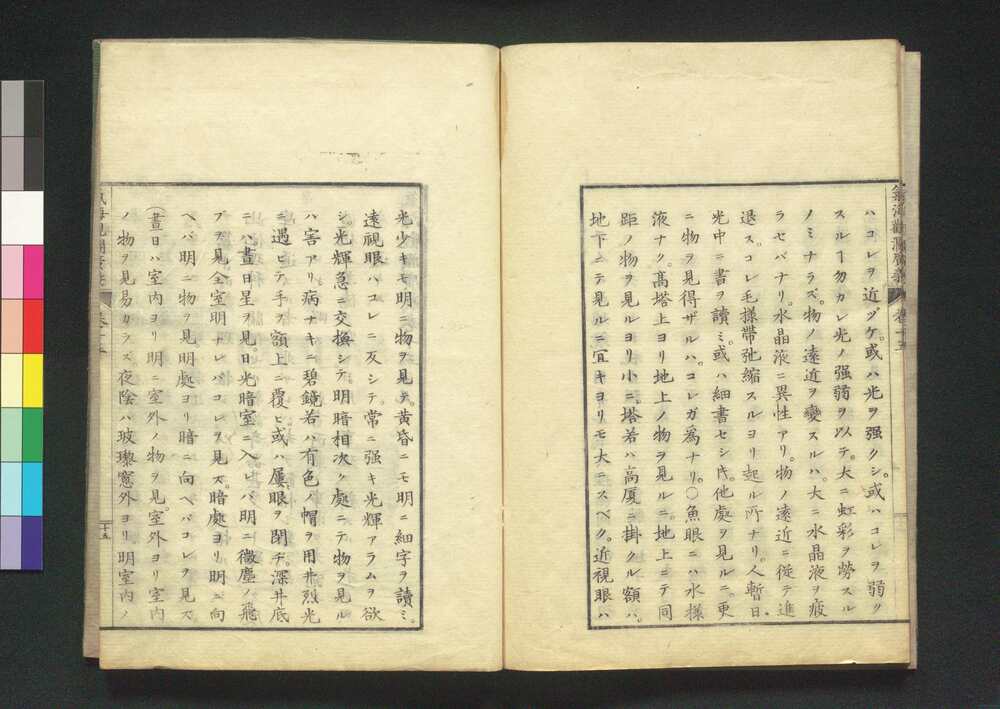 氣海觀瀾廣義 卷十五
ハコレヲ近ヅケ。或ハ光ヲ强クシ。或ハコレヲ弱ク
スルヿ勿カレ光ノ强弱ヲ以テ。大ニ虹彩ヲ勞スル
ノミナラズ。物ノ遠近ヲ變スルハ。大ニ水晶液ヲ疲
ラセバナリ。水晶液ニ異性アリ。物ノ遠近ニ從テ進
退ス。コレ毛樣帶弛縮スルヨリ起ル所ナリ。人暫日
光中ニ書ヲ讀ミ。或ハ細書セシ𪜈。他處ヲ見ルニ。更
ニ物ヲ見得ザルハ。コレガ爲ナリ。〇魚眼ニハ水樣
液ナク。高塔上ヨリ地上ノ物ヲ見ルニ。地上ニテ同
距ノ物ヲ見ルヨリ小ニ。塔若ハ高厦ニ掛クル額ハ。
地下ニテ見ルニ宜キヨリモ大ニスベク。近視眼ハ
光少キモ明ニ物ヲ見テ。黄昏ニモ明ニ細字ヲ讀ミ。
遠視眼ハコレニ反シテ。常ニ强キ光輝アラムヿヲ欲
シ。光輝急ニ交換シテ。明暗相次ク處ニテ物ヲ見ル
ハ害アリ。病ナキニ碧鏡若ハ有色ノ帽ヲ用井烈光
ニ遇ヒテ手ヲ額上ニ覆ヒ或ハ屢眼ヲ閉ヂ。深井底
ニハ晝日星ヲ見日光暗室ニ入レバ明ニ微塵ノ飛
ブヲ見全室明ナレバコレヲ見ズ。暗處ヨリ明ニ向
ヘバ明ニ物ヲ見明處ヨリ暗ニ向ヘバコレヲ見ズ
(晝日ハ室内ヨリ明ニ室外ノ物ヲ見。室外ヨリ室内
ノ物ヲ見易カラズ夜陰ハ玻瓈窻外ヨリ明室内ノ
卷十五
十五